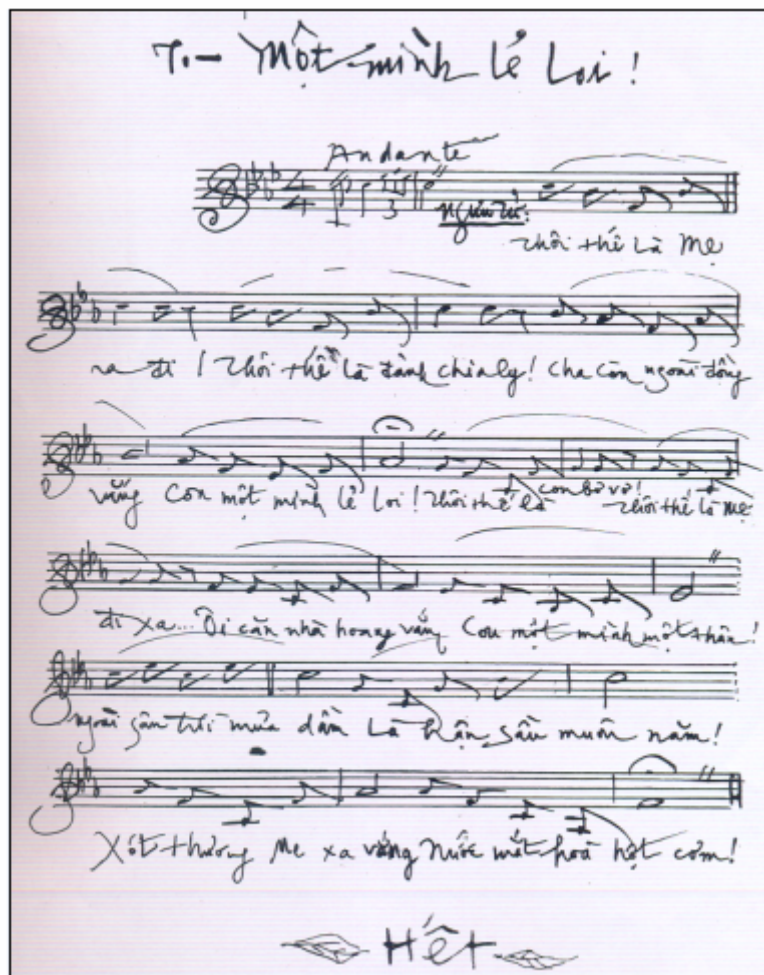 7.- Một mình lẻ loi!
Andante
4 4 3
Thôi thế là Mẹ
ra đi! Thôi thế là đành chia ly! Cha còn ngoài đồng
vắng Con một mình lẻ loi! Thôi thế là con bơ vơ! Thôi thế là Mẹ
đi xa... Ôi căn nhà hoang vắng Con một mình một thân!
ngoài sân trời mưa dầm Là hận sầu muôn năm!
Xót thương Mẹ xa vắng Nước mắt hoà hột cơm!
Hết